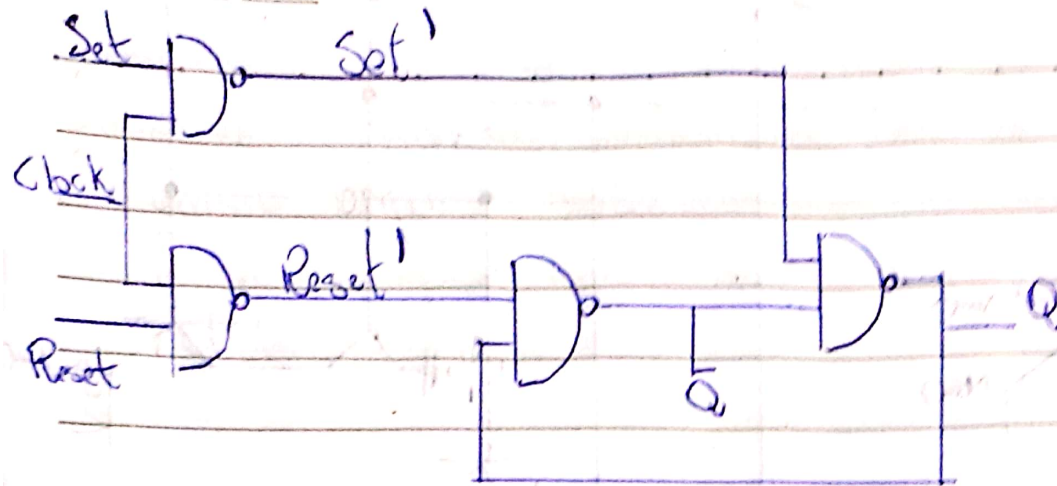 Set
Set'
Clock
Reset'
Reset
Q
Q̅